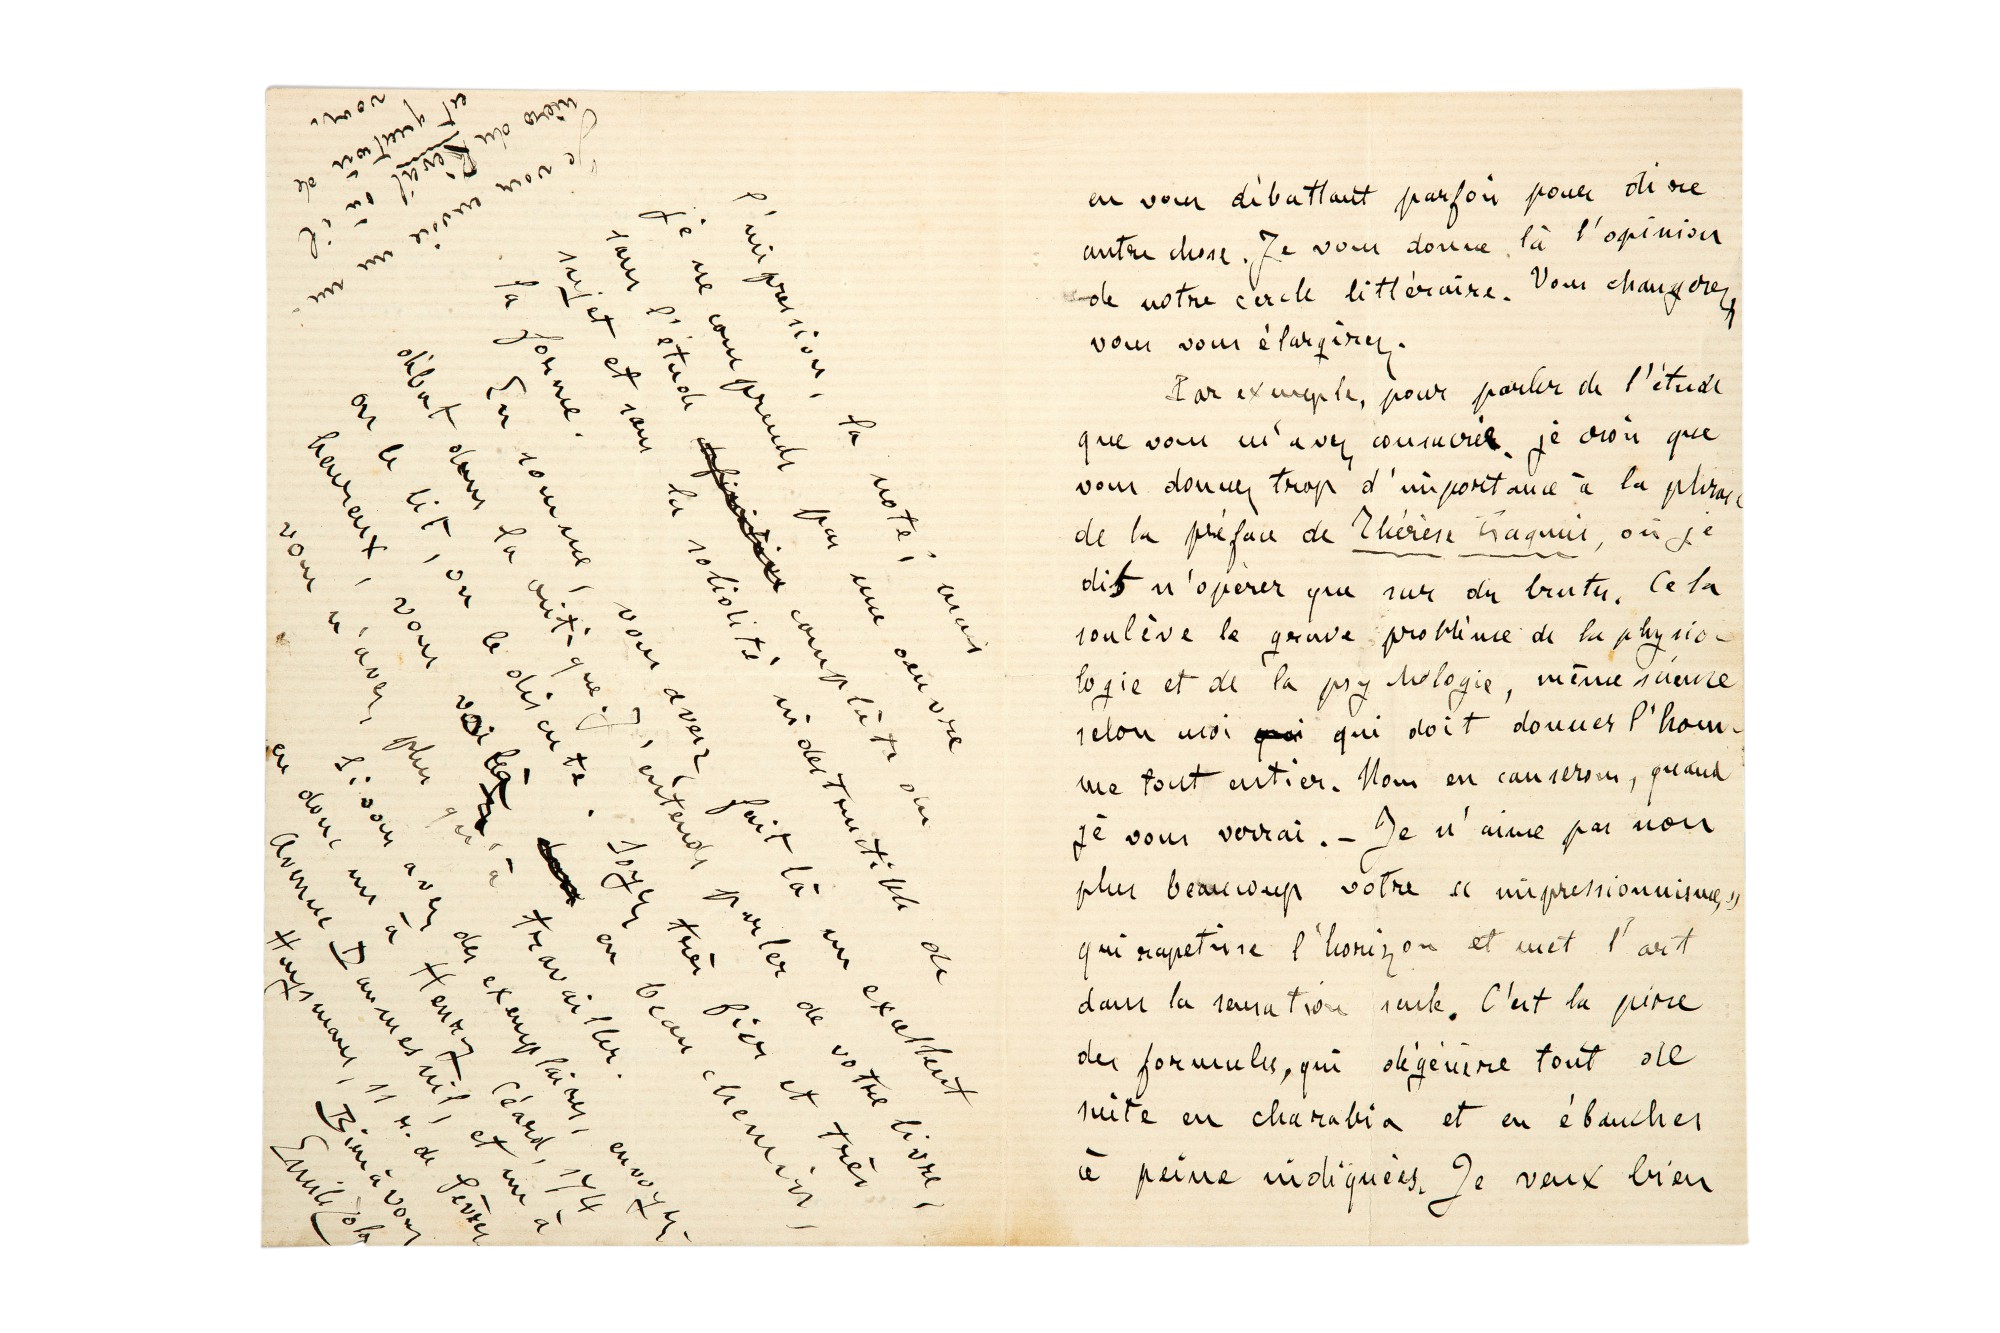 en vous débattant parfois pour dire
autre chose. Je vous donne là l'opinion
de notre cercle littéraire. Vous changerez,
vous vous élargirez.
Par exemple, pour parler de l'étude
que vous m'avez consacrée, je crois que
vous donnez trop d'importance à la phrase
de la préface de Thérèse Raquin, où je
dis n'opérer que sur des brutes. Cela
soulève le grave problème de la physio-
logie et de la psychologie, même science
selon moi qui doit donner l'hom-
me tout entier. Nous en causerons, quand
je vous verrai. – Je n'aime pas non
plus beaucoup votre « impressionnisme, »
qui rapetisse l'horizon et met l'art
dans la sensation seule. C'est la pire
des formules, qui dégénère tout de
suite en charabia et en ébauches
à peine indiquées. Je veux bien
l'impression, la note, mais
je ne comprends pas une œuvre
sans l'étude complète du
sujet et sans la solidité indestructible de
la forme.
En somme, vous avez fait là un excellent
début dans la critique. J'entends parler de votre livre,
on le lit, on le discute. Soyez très fier et très
heureux, vous voilà en beau chemin,
vous n'avez plus qu'à travailler.
Si vous avez des exemplaires, envoyez-
en donc un à Henry Céard, 174
Avenue Daumesnil, et un à
Huysmans, 11 r. de Sèvres
Bien à vous
Emile Zola
Je vous envoie un nu-
méro du Réveil où il
est question de
vous.